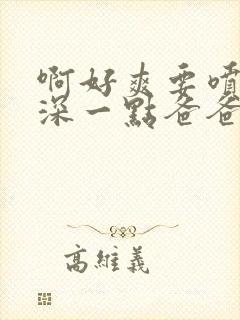 啊好爽要噴
深一點爸爸
高維義